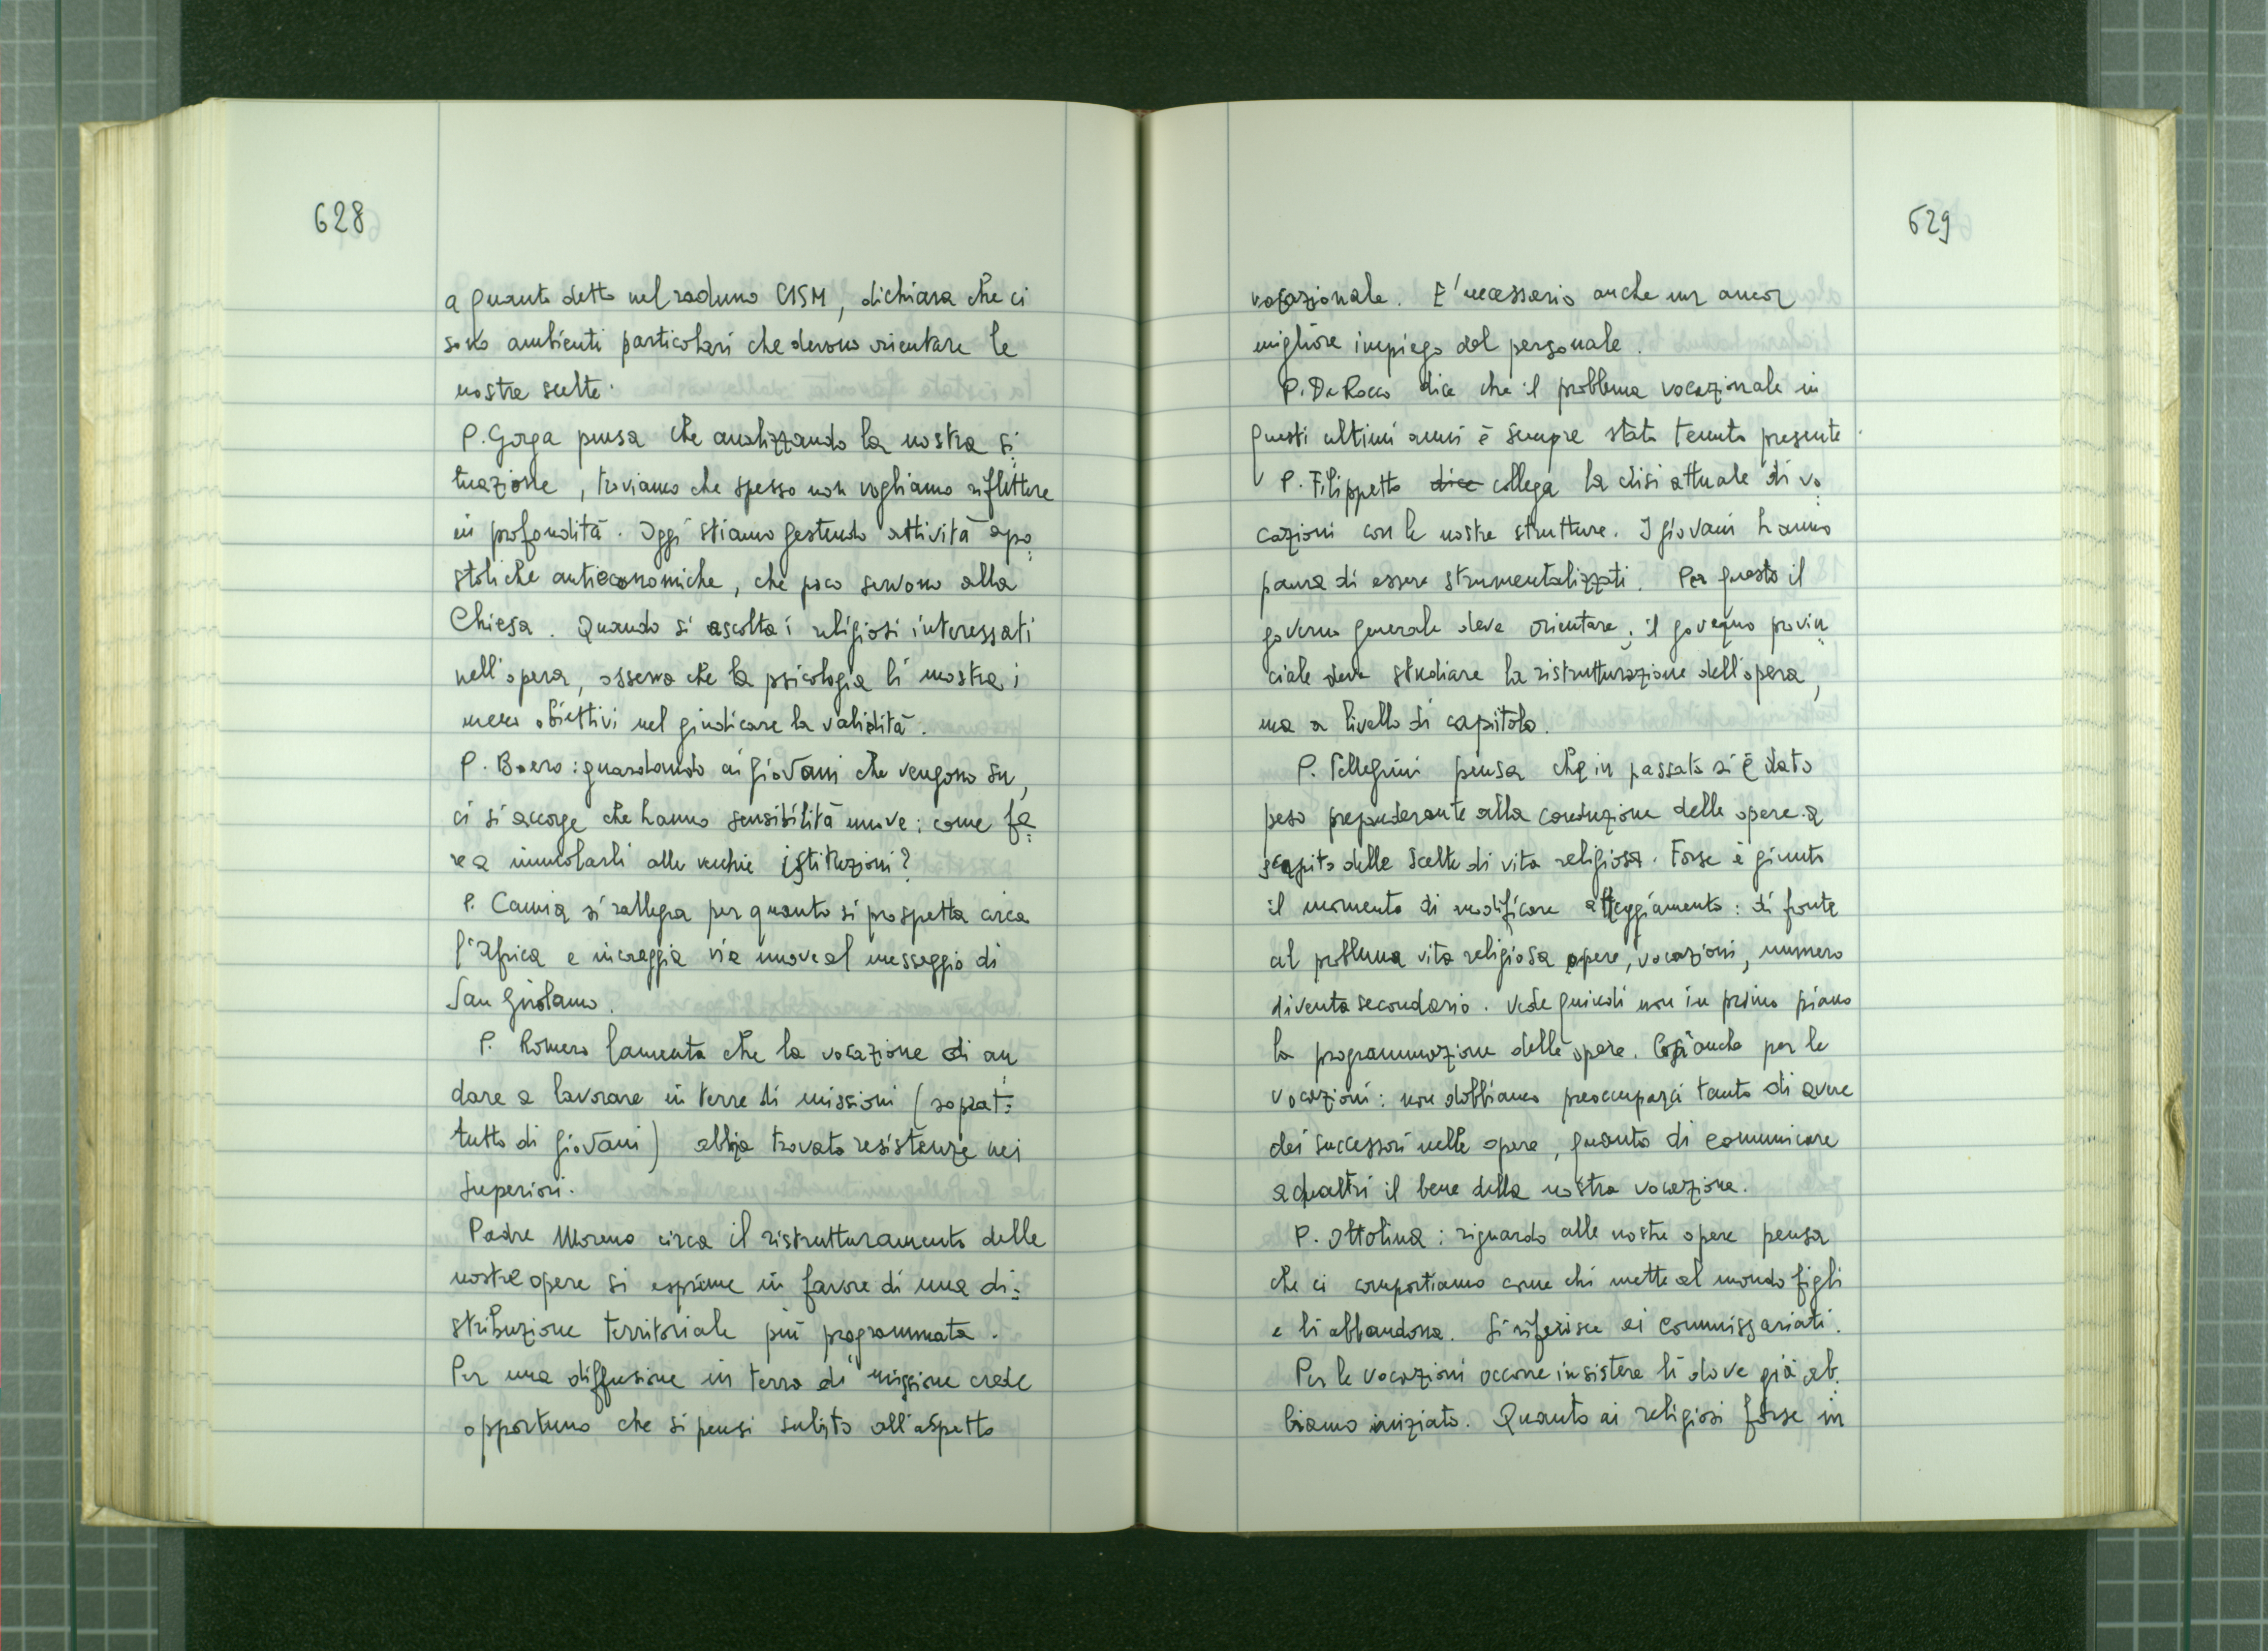 628
a quanto detto nel raduno CISM, dichiara che ci
sono ambienti particolari che devono orientare le
nostre scelte.
P. Gorga pensa che analizzando la nostra si=
tuazione, troviamo che spesso non vogliamo riflettere
in profondità. Oggi stiamo gestendo attività apo=
stoliche antieconomiche, che poco servono alla
Chiesa. Quando si ascolta i religiosi interessati
nell'opera, osserva che la psicologia li mostra i
meno obiettivi nel giudicare la validità.
P. Boero: guardando ai giovani che vengono su,
ci si accorge che hanno sensibilità nuove: come fa=
re a inmolarli alle vecchie istituzioni?
P. Camia si rallegra per quanto si prospetta circa
l'Africa e incoraggia vie nuove al messaggio di
San Girolamo.
P. Romero lamenta che la vocazione di an=
dare a lavorare in terre di missioni (soprat=
tutto di giovani) abbia trovato resistenze nei
Superiori.
Padre Moreno circa il ristrutturamento delle
nostre opere si esprime in favore di una di=
stribuzione territoriale più programmata.
Per una diffusione in terra di missione crede
opportuno che si pensi subito all'aspetto
629
vocazionale. E' necessario anche un ancor
migliore impiego del personale.
P. De Rocco dice che il problema vocazionale in
questi ultimi anni è sempre stato tenuto presente.
P. Filippetto dice collega la crisi attuale di vo=
cazioni con le nostre strutture. I giovani hanno
paura di essere strumentalizzati. Per questo il
governo generale deve orientare, il governo provin=
ciale deve studiare la ristrutturazione dell'opera,
ma a livello di capitolo.
P. Pellegrini pensa che in passato si è dato
peso preponderante alla conduzione delle opere a
scapito delle scelte di vita religiosa. Forse è giunto
il momento di modificare atteggiamento: di fronte
al problema vita religiosa opere, vocazioni, numero
diventa secondario. Vede quindi non in primo piano
la programmazione delle opere. Così anche per le
vocazioni: non dobbiamo preoccuparci tanto di avere
dei successori nelle opere, quanto di comunicare
ad altri il bene della nostra vocazione.
P. Ottolina: riguardo alle nostre opere pensa
che ci comportiamo come chi mette al mondo figli
e li abbandona. Si riferisce ai commissariati.
Per le vocazioni occorre insistere lì dove già ab=
biamo iniziato. Quanto ai religiosi forse in